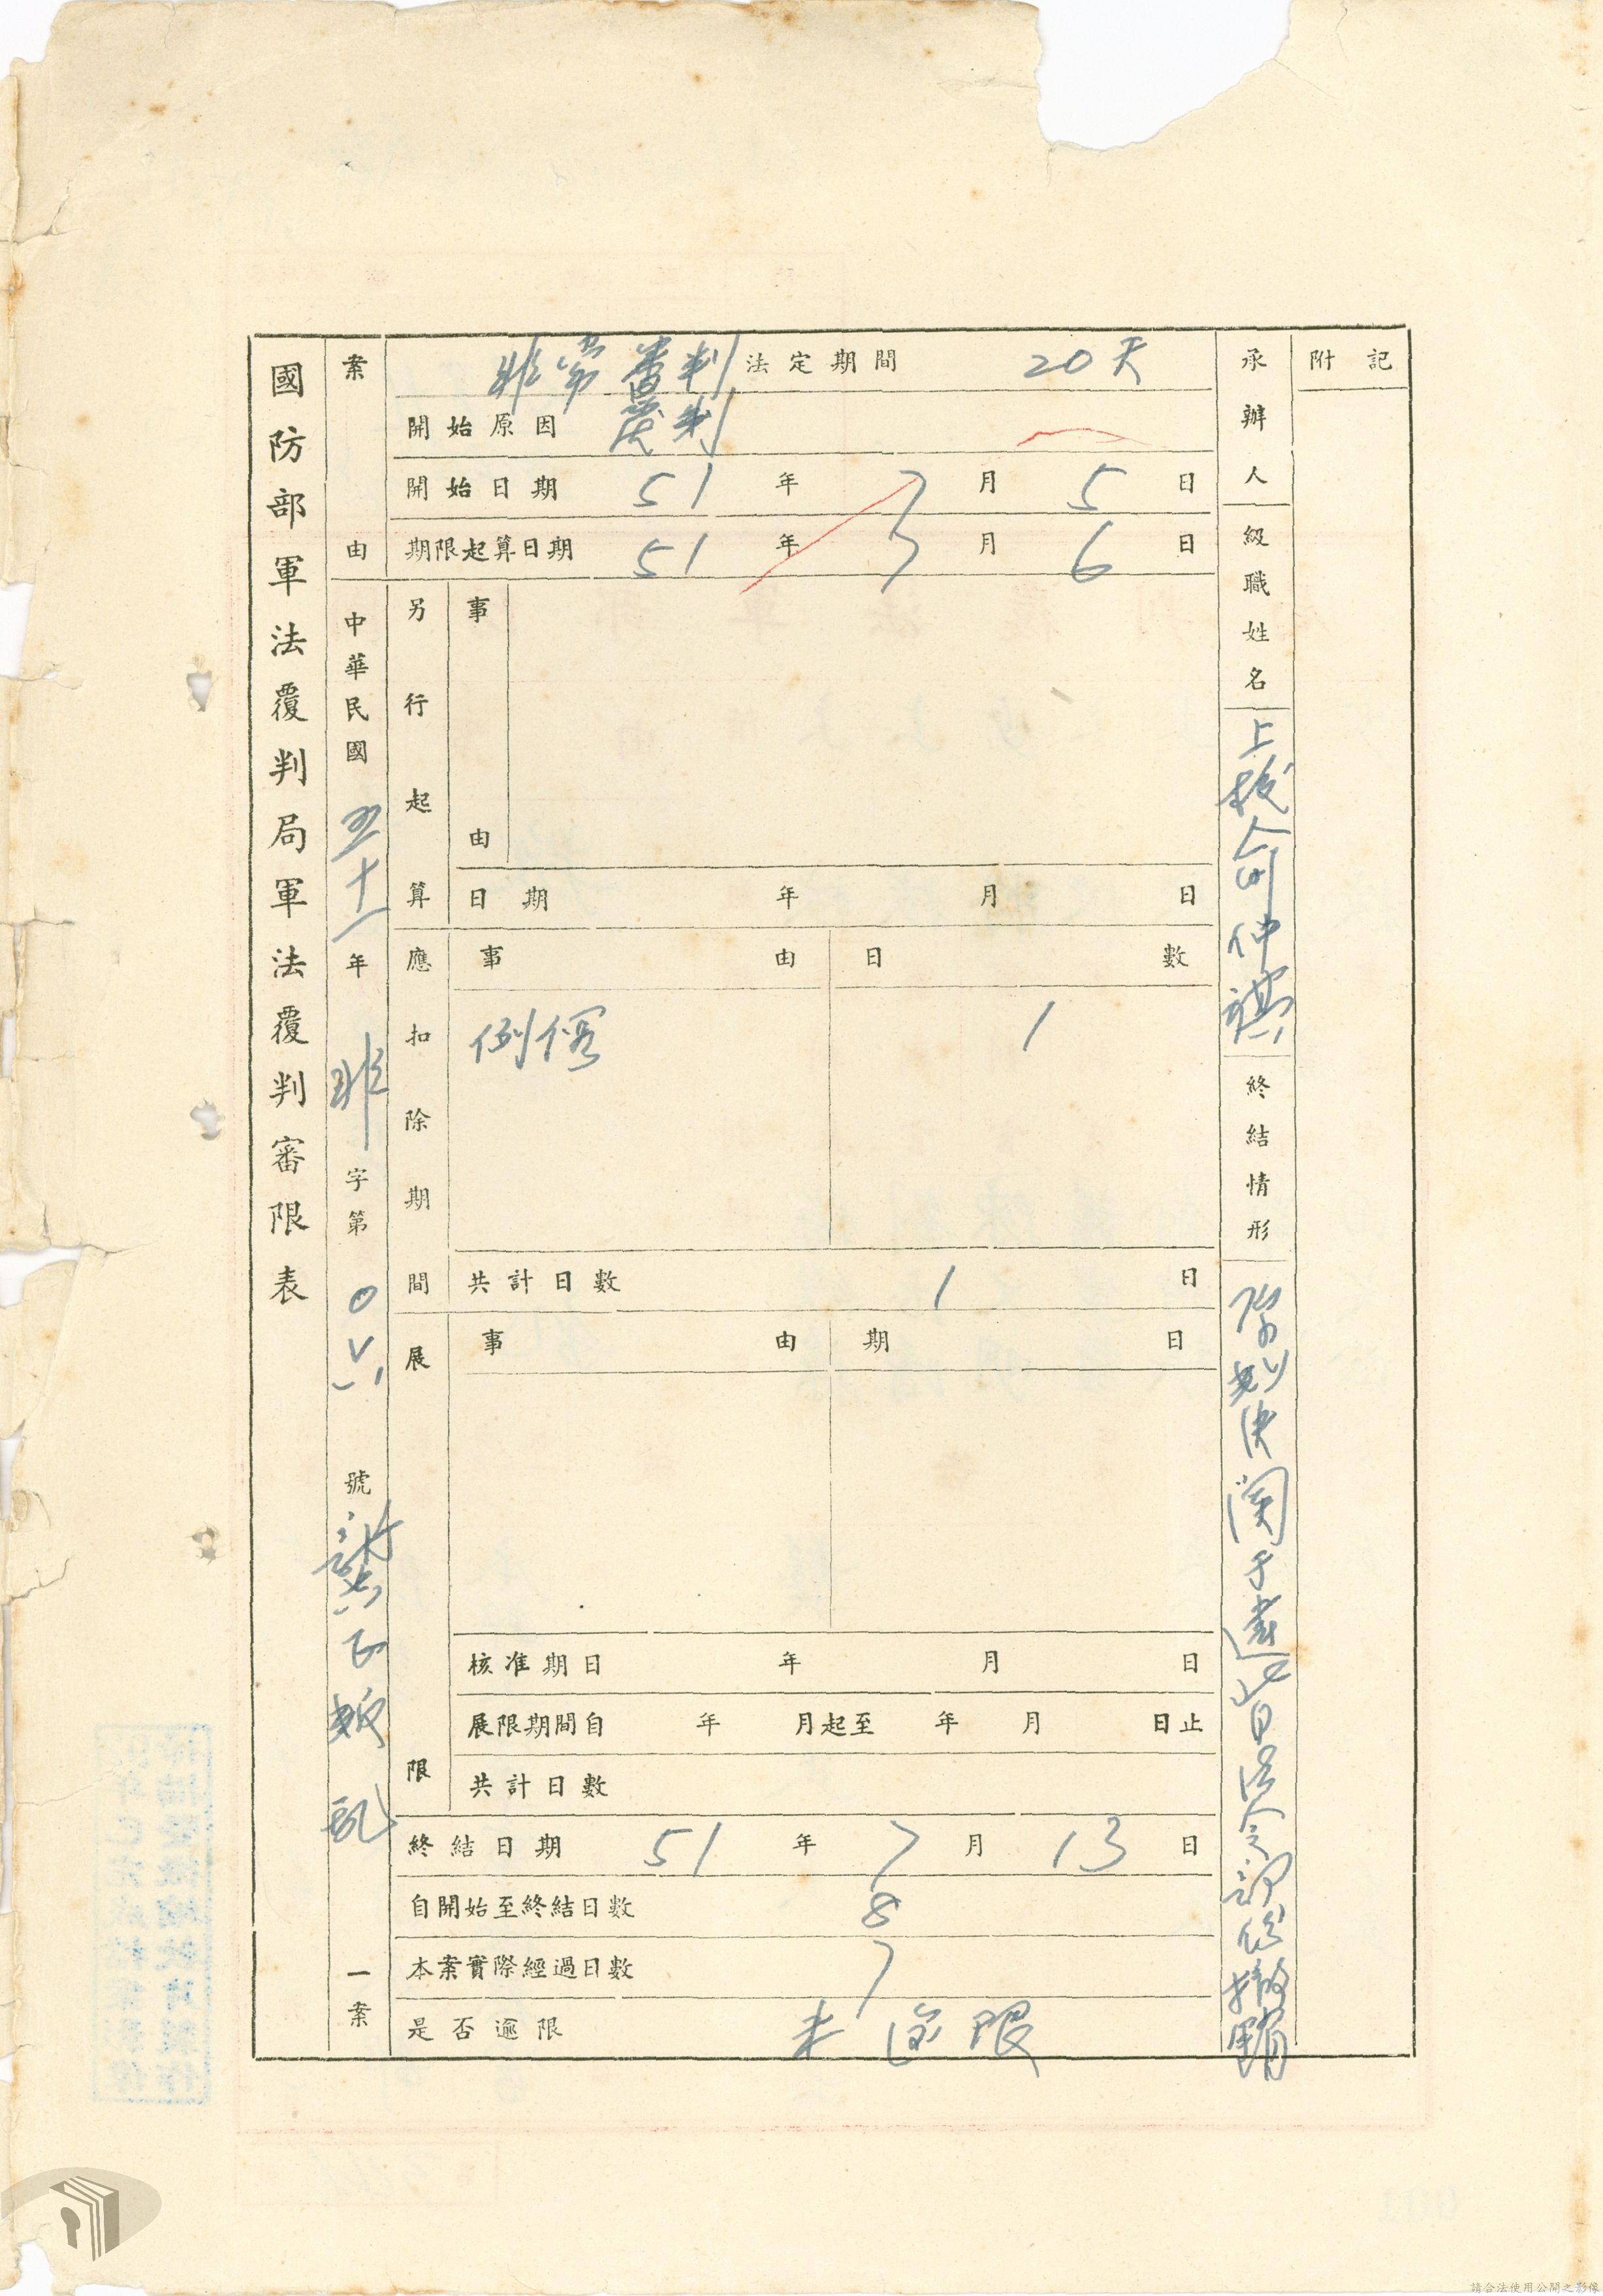 國防部軍法覆判局軍法覆判審限表
案由
中華民國五十一年非字第〇六號龔子叛亂一案
非常審判 法定期間 20天
開始原因 覆判
開始日期 51年7月5日
期限起算日期 51年7月6日
另行起算
事由
日期 年 月 日
應扣除期間
事由 日數
例假 1
共計日數 1 日
展限
事由 期日
核准期日 年 月 日
展限期間自 年 月起至 年 月 日止
共計日數
終結日期 51年7月13日
自開始至終結日數 8
本案實際經過日數 7
是否逾限 未逾限
承辦人級職姓名 上校俞仲祺
終結情形 原判決關于違背法令部份撤銷
附記
請合法使用公開之影像